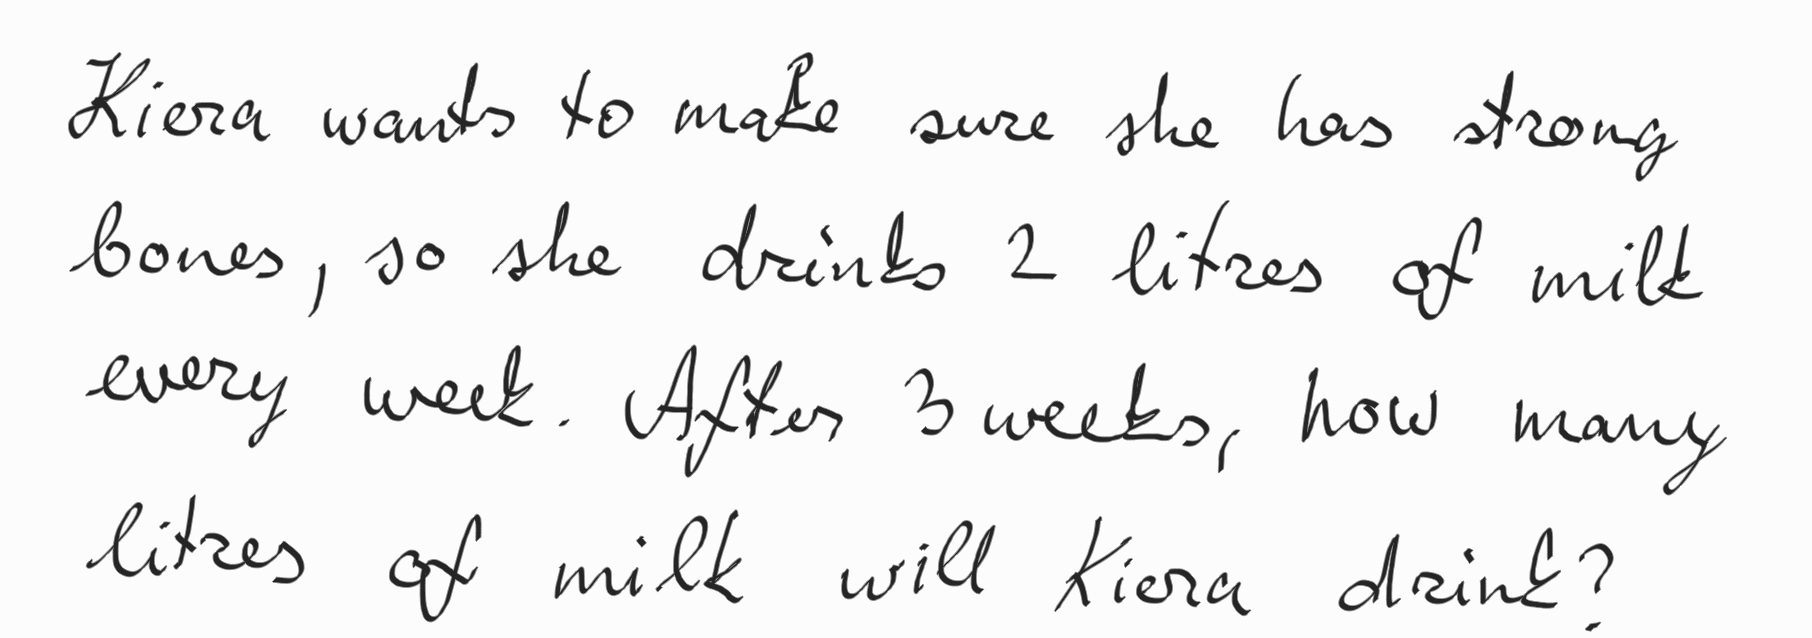 Kiera wants to make sure she has strong
bones, so she drinks 2 litres of milk
every week. After 3 weeks, how many
litres of milk will Kiera drink?